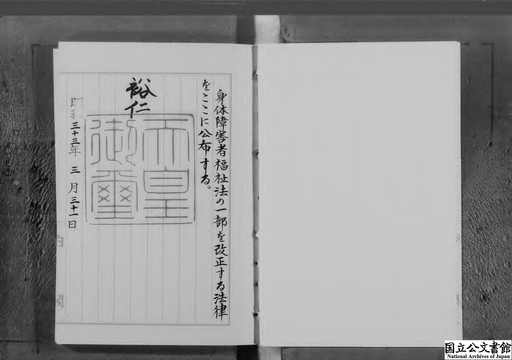 身体障害者福祉法の一部を改正する法律
をここに公布する。
裕仁
天皇
御璽
昭和三十三年三月三十一日
国立公文書館
National Archives of Japan